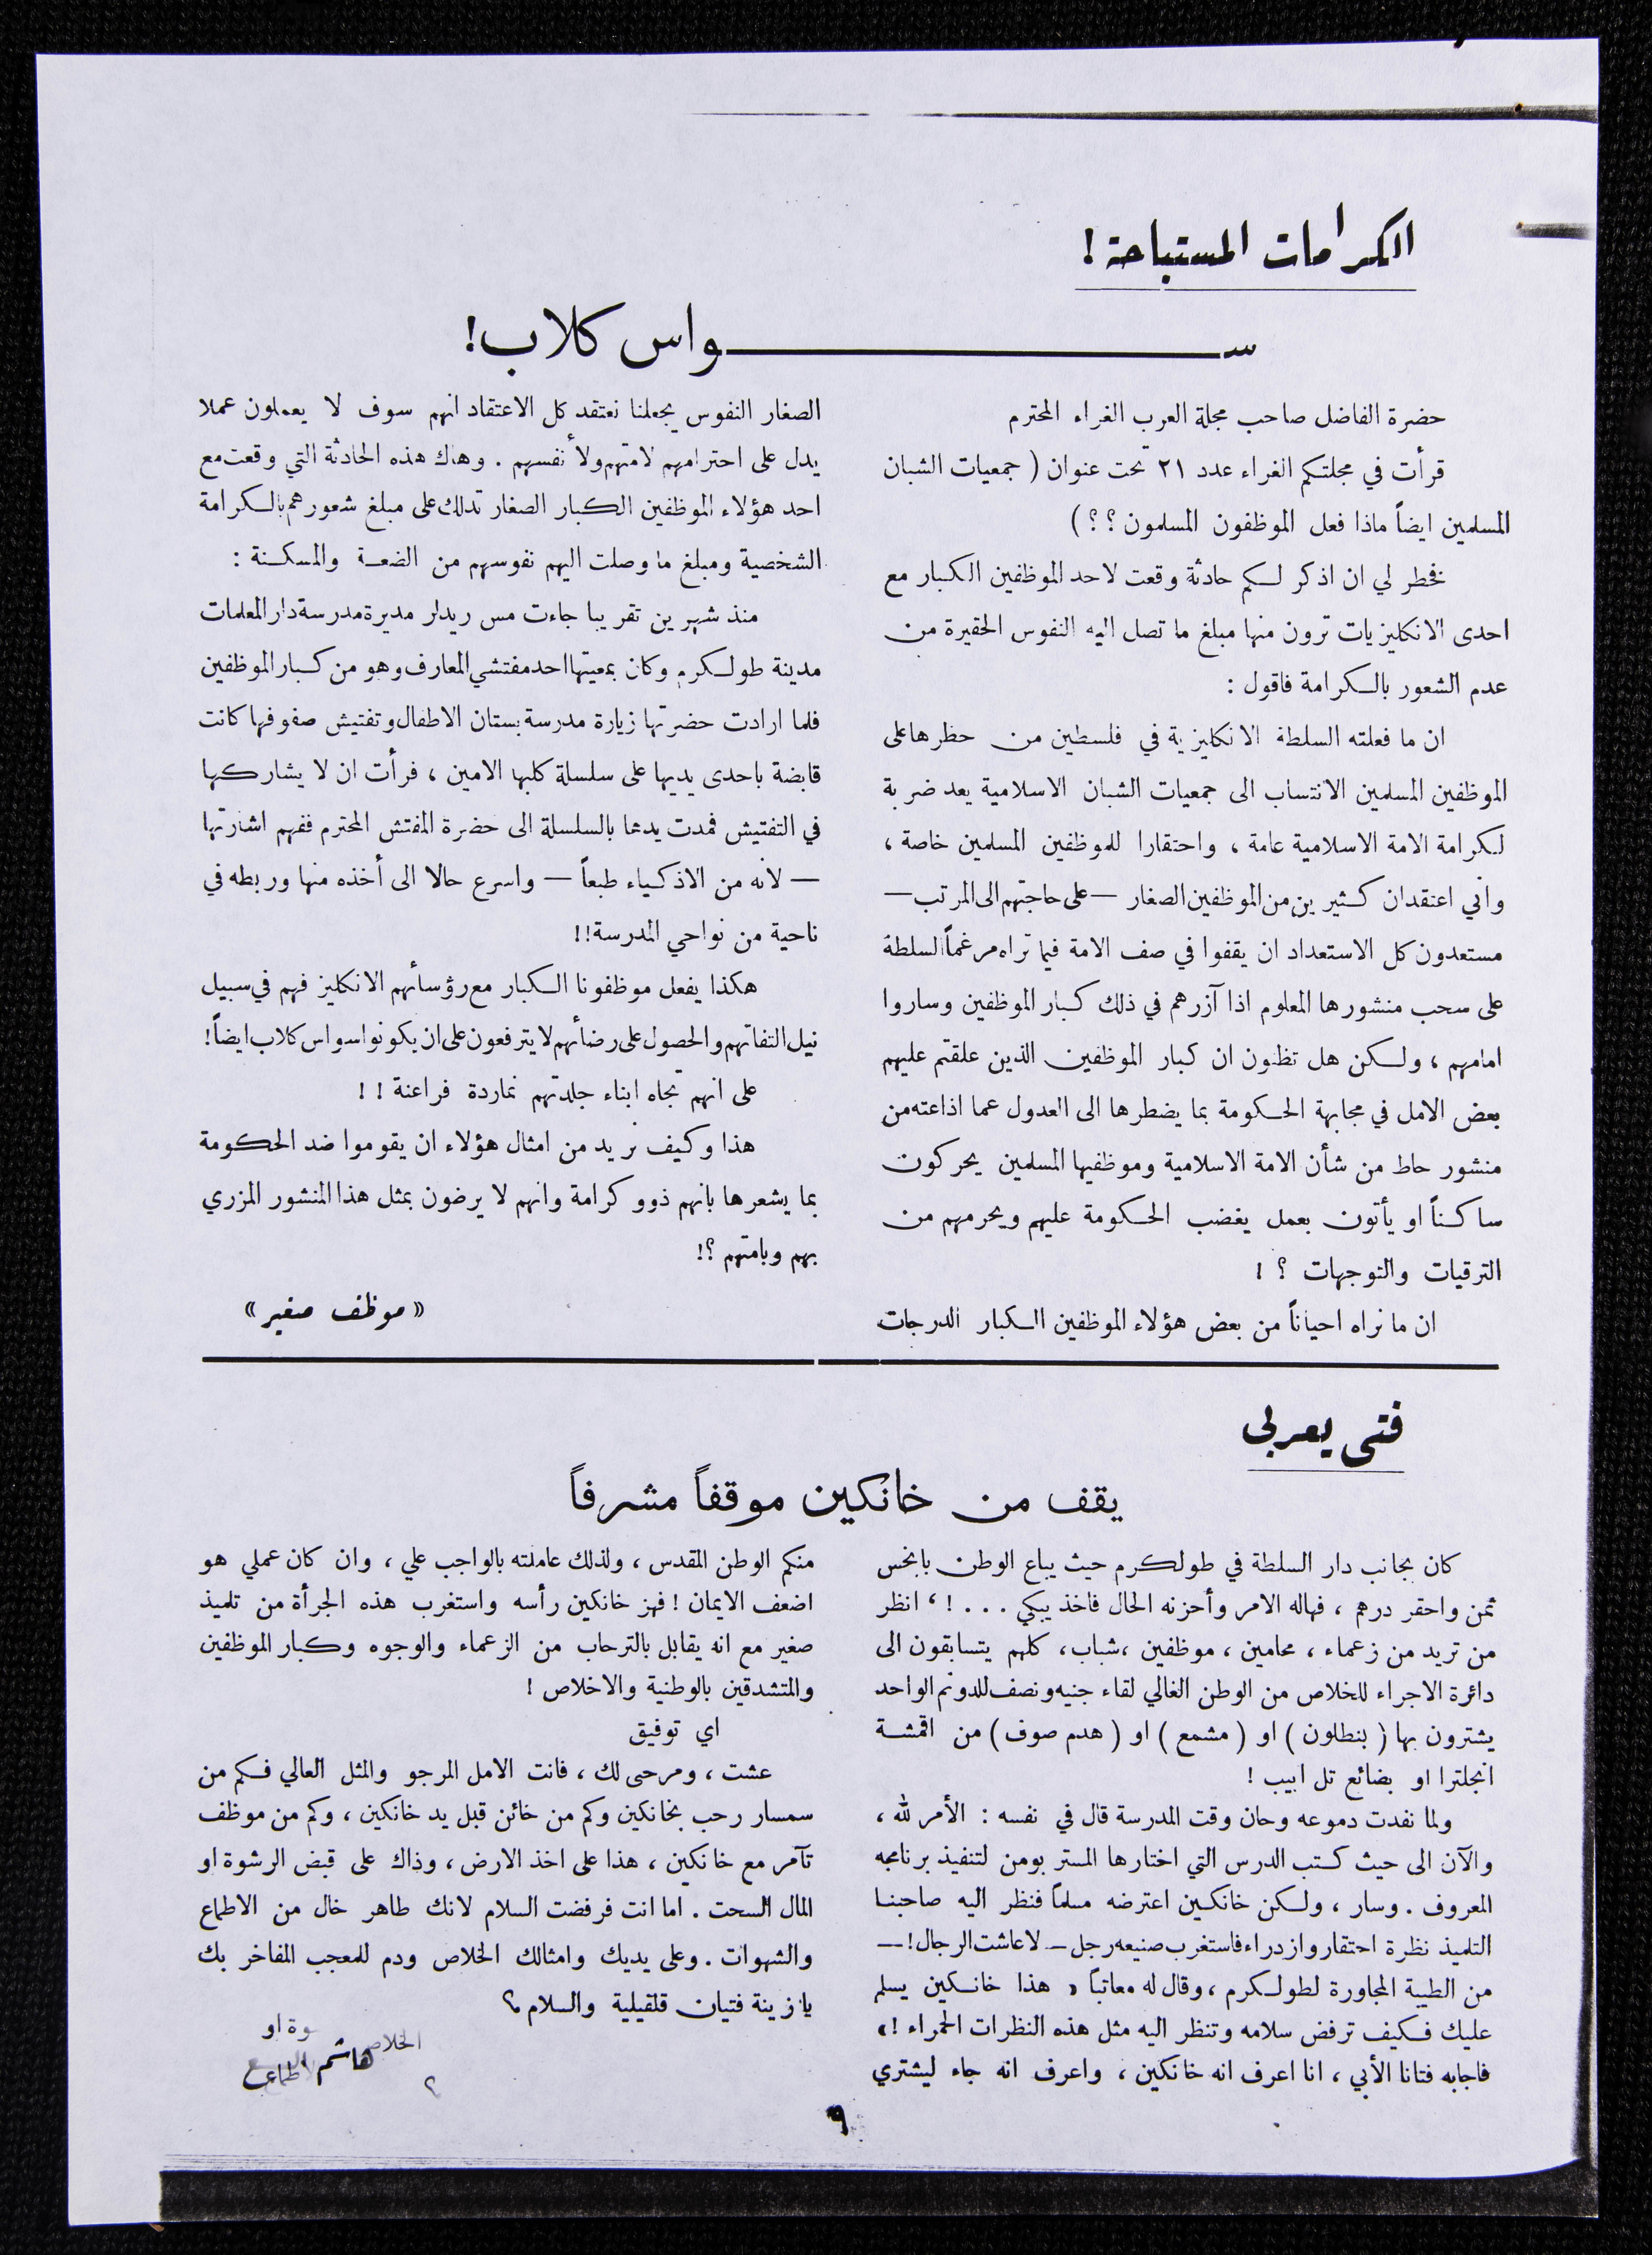 الكرامات المستباحة !
سواس كلاب !
حضرة الفاضل صاحب مجلة العرب الغراء المحترم
قرأت في مجلتكم الغراء عدد ٢١ تحت عنوان ( جمعيات الشبان
المسلمين ايضاً ماذا فعل الموظفون المسلمون ؟ ؟ )
فخطر لي ان اذكر لكم حادثة وقعت لاحد الموظفين الكبار مع
احدى الانكليزيات ترون منها مبلغ ما تصل اليه النفوس الحقيرة من
عدم الشعور بالكرامة فاقول :
ان ما فعلته السلطة الانكليزية في فلسطين من حظرها على
الموظفين المسلمين الانتساب الى جمعيات الشبان الاسلامية يعد ضربة
لكرامة الامة الاسلامية عامة ، واحتقارا للموظفين المسلمين خاصة ،
واني اعتقد ان كثيرين من الموظفين الصغار — على حاجتهم الى المرتب —
مستعدون كل الاستعداد ان يقفوا في صف الامة فيما تراه مرغماً السلطة
على سحب منشورها المعلوم اذا آزرهم في ذلك كبار الموظفين وساروا
امامهم ، ولكن هل تظنون ان كبار الموظفين الذين علقتم عليهم
بعض الامل في مجابهة الحكومة بما يضطرها الى العدول عما اذاعته من
منشور حاط من شأن الامة الاسلامية وموظفيها المسلمين يحركون
ساكناً او يأتون بعمل يغضب الحكومة عليهم ويحرمهم من
الترقيات والتوجهات ؟ !
ان ما نراه احياناً من بعض هؤلاء الموظفين الكبار الدرجات
الصغار النفوس يجعلنا نعتقد كل الاعتقاد انهم سوف لا يعملون عملا
يدل على احترامهم لامتهم ولأنفسهم . وهاك هذه الحادثة التي وقعت مع
احد هؤلاء الموظفين الكبار الصغار تدلك على مبلغ شعورهم بالكرامة
الشخصية ومبلغ ما وصلت اليهم نفوسهم من الضعة والمسكنة :
منذ شهرين تقريبا جاءت مس ريدلر مديرة مدرسة دار المعلمات
مدينة طولكرم وكان بمعيتها احد مفتشي المعارف وهو من كبار الموظفين
فلما ارادت حضرتها زيارة مدرسة بستان الاطفال وتفتيش صفوفها كانت
قابضة باحدى يديها على سلسلة كلبها الامين ، فرأت ان لا يشاركها
في التفتيش فمدت يدها بالسلسلة الى حضرة المفتش المحترم ففهم اشارتها
— لانه من الاذكياء طبعاً — واسرع حالا الى أخذه منها وربطه في
ناحية من نواحي المدرسة!!
هكذا يفعل موظفونا الكبار مع رؤسائهم الانكليز فهم في سبيل
نيل التفاتهم والحصول على رضائهم لا يترفعون على ان يكونوا سواس كلاب ايضاً!
على انهم تجاه ابناء جلدتهم نماردة فراعنة ! !
هذا وكيف نريد من امثال هؤلاء ان يقوموا ضد الحكومة
بما يشعرها بانهم ذوو كرامة وانهم لا يرضون بمثل هذا المنشور المزري
بهم وبامتهم ؟!
« موظف صغير »
فتى يعربي
يقف من خانكين موقفاً مشرفاً
كان بجانب دار السلطة في طولكرم حيث يباع الوطن بابخس
ثمن واحقر درهم ، فهاله الامر وأحزنه الحال فاخذ يبكي . . . ! ، انظر
من تريد من زعماء ، محامين ، موظفين ، شباب ، كلهم يتسابقون الى
دائرة الاجراء للخلاص من الوطن الغالي لقاء جنيه ونصف للدونم الواحد
يشترون بها ( بنطلون ) او ( مشمع ) او ( هدم صوف ) من اقمشة
انجلترا او بضائع تل ابيب !
ولما نفدت دموعه وحان وقت المدرسة قال في نفسه : الأمر لله ،
والآن الى حيث كتب الدرس التي اختارها المستر بومن لتنفيذ برنامجه
المعروف . وسار ، ولكن خانكين اعترضه مسلماً فنظر اليه صاحبنا
التلميذ نظرة احتقار وازدراء فاستغرب صنيعه رجل — لا عاشت الرجال! —
من الطيبة المجاورة لطولكرم ، وقال له معاتباً « هذا خانكين يسلم
عليك فكيف ترفض سلامه وتنظر اليه مثل هذه النظرات الحمراء !»
فاجابه فتانا الأبي ، انا اعرف انه خانكين ، واعرف انه جاء ليشتري
منكم الوطن المقدس ، ولذلك عاملته بالواجب علي ، وان كان عملي هو
اضعف الايمان ! فهز خانكين رأسه واستغرب هذه الجرأة من تلميذ
صغير مع انه يقابل بالترحاب من الزعماء والوجوه وكبار الموظفين
والمتشدقين بالوطنية والاخلاص !
اي توفيق
عشت ، ومرحى لك ، فانت الامل المرجو والمثل العالي فكم من
سمسار رحب بخانكين وكم من خائن قبل يد خانكين ، وكم من موظف
تآمر مع خانكين ، هذا على اخذ الارض ، وذاك على قبض الرشوة او
المال السحت . اما انت فرفضت السلام لانك طاهر خال من الاطماع
والشهوات . وعلى يديك وامثالك الخلاص ودم للمعجب المفاخر بك
يا زينة فتيان قلقيلية والسلام ؟
وة او
الخلاص
هاشم
٩